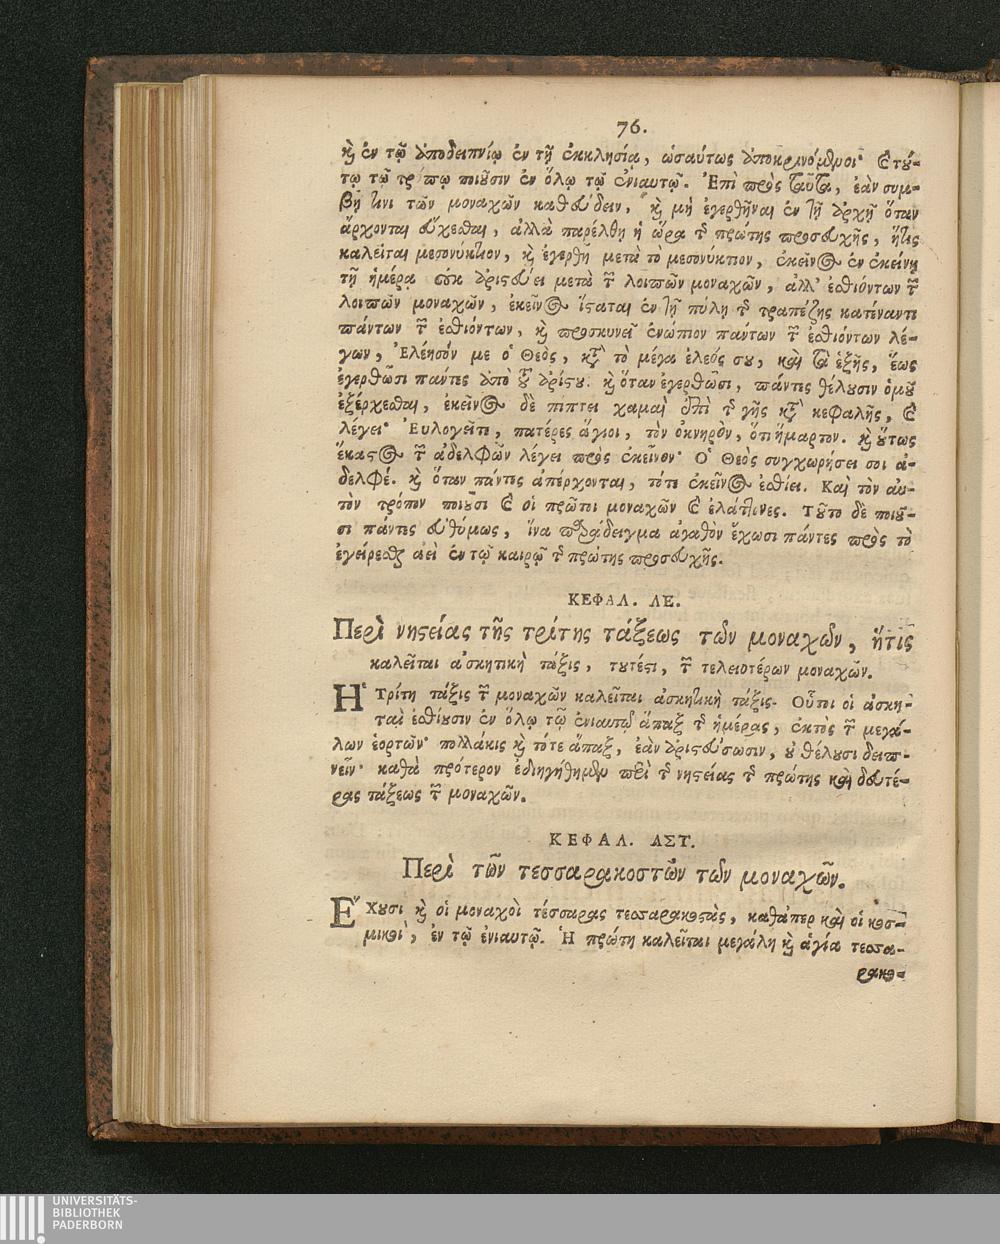 76.
καὶ ἐν τῷ ἀποδειπνίῳ ἐν τῇ ἐκκλησίᾳ, ὡσαύτως ἀποκρινόμενοι· καὶ τού-
τῳ τῷ τρόπῳ ποιοῦσιν ἐν ὅλῳ τῷ ἐνιαυτῷ. Ἐπὶ πρὸς ταῦτα, ἐὰν συμ-
βῇ τινι τῶν μοναχῶν καθεύδειν, καὶ μὴ ἐγερθῆναι ἐν τῇ ἀρχῇ ὅταν
ἄρχονται εὔχεσθαι, ἀλλὰ παρέλθῃ ἡ ὥρα τῆς πρώτης προσευχῆς, ἥτις
καλεῖται μεσονύκτιον, καὶ ἐγερθῇ μετὰ το μεσονύκτιον, ἐκεῖνος ἐν ἐκείνῃ
τῇ ἡμέρᾳ οὐκ ἀριστεύει μετὰ τῶν λοιπῶν μοναχῶν, ἀλλ' ἐσθιόντων τῶν
λοιπῶν μοναχῶν, ἐκεῖνος ἵσταται ἐν τῇ πύλῃ τῆς τραπέζης κατέναντι
πάντων τῶν ἐσθιόντων, καὶ προσκυνεῖ ἐνώπιον παντων τῶν ἐσθιόντων λέ-
γων, Ἐλέησόν με ὁ Θεὸς, κατὰ τὸ μέγα ἐλεός σου, καὶ τὰ ἑξῆς, ἕως
ἐγερθῶσι παντες ἀπὸ τοῦ ἀρίστου. καὶ ὅταν ἐγερθῶσι, πάντες θέλουσιν ὁμοῦ
ἐξέρχεσθαι, ἐκεῖνος δὲ πίπτει χαμαὶ ἐπὶ τῆς γῆς κατὰ κεφαλῆς, καὶ
λέγει· Ἐυλογεῖτε, πατέρες ἅγιοι, τὸν ὀκνηρὸν, ὅτι ἥμαρτον. καὶ οὕτως
ἕκαστος τῶν ἀδελφῶν λέγει πρὸς ἐκεῖνον· Ὁ Θεὸς συγχωρήσει σοι ἀ-
δελφέ. καὶ ὅταν πάντες ἀπέρχονται, τότε ἐκεῖνος ἐσθίει. Καὶ τὸν αὐ-
τὸν τρόπον ποιοῦσι καὶ οἱ πρῶτοι μοναχῶν καὶ ἐλάττονες. Τοῦτο δὲ ποιοῦ-
σι πάντες εὐθύμως, ἵνα παράδειγμα ἀγαθὸν ἔχωσι πάντες πρὸς τὸ
ἐγείρεσθαι ἀεὶ ἐν τῷ καιρῷ τῆς πρώτης προσευχῆς.
ΚΕΦΑΛ. ΛΕ.
Περὶ νηστείας τῆς τρίτης τάξεως τῶν μοναχῶν, ἥτις
καλεῖται ἀσκητικὴ τάξις, τουτέστι, τῶν τελειοτέρων μοναχῶν.
Ἡ Τρίτη τάξις τῶν μοναχῶν καλεῖται ἀσκητικὴ τάξις. Οὗτοι οἱ ἀσκη-
ταὶ ἐσθίουσιν ἐν ὅλῳ τῷ ἐνιαυτῷ ἅπαξ τῆς ἡμέρας, ἐκτὸς τῶν μεγά-
λων ἑορτῶν· πολλάκις καὶ τότε ἅπαξ, ἐὰν ἀριστεύσωσιν, οὐ θέλουσι δειπ-
νεῖν· καθὰ πρότερον ἐδιηγήθημεν περὶ τῆς νηστείας τῆς πρώτης καὶ δευτέ-
ρας τάξεως τῶν μοναχῶν.
ΚΕΦΑΛ. ΛΣΤ.
Περὶ τῶν τεσσαρακοστῶν τῶν μοναχῶν.
Ἔχουσι καὶ οἱ μοναχοὶ τέσσαρας τεσσαρακοστὰς, καθάπερ καὶ οἱ κοσ-
μικοὶ, ἐν τῷ ἐνιαυτῷ. Ἡ πρώτη καλεῖται μεγάλη καὶ ἁγία τεσσα-
ρακο-
UNIVERSITÄTS-
BIBLIOTHEK
PADERBORN